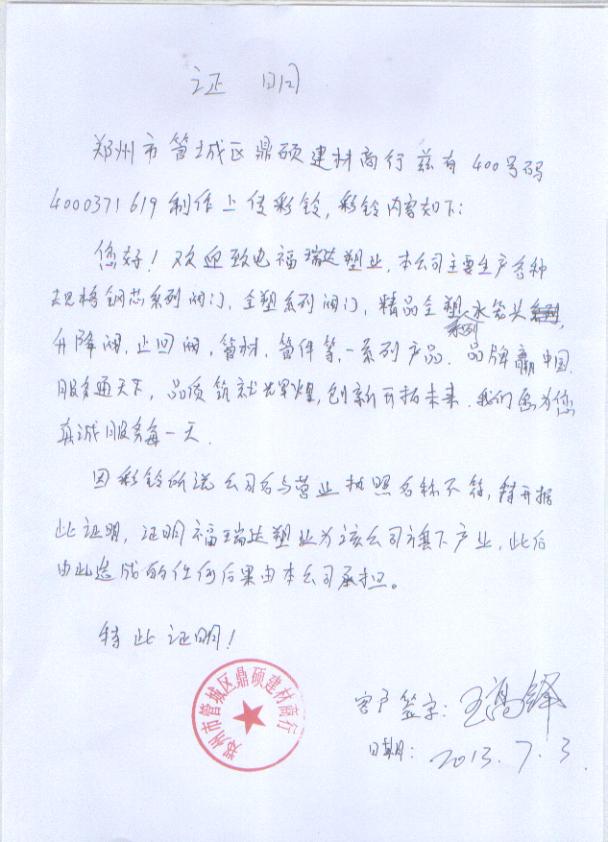 证明
郑州市管城区鼎硕建材商行兹有400号码
4000371619制作上传彩铃,彩铃内容如下:
您好!欢迎致电福瑞达塑业,本公司主要生产各种
规格铜芯系列阀门,全塑系列阀门,精品全塑水笼头
系列
升降阀,止回阀,管材,管件等,一系列产品.品牌赢中国.
服务通天下,品质筑就辉煌,创新开拓未来.我们愿为您
真诚服务每一天.
因彩铃所说公司名与营业执照名称不符,特开据
此证明,证明福瑞达塑业为该公司旗下产业,此后
由此造成的任何后果由本公司承担。
特此证明!
客户签字:王
日期:2013.7.3
郑州市管城区鼎硕建材商行